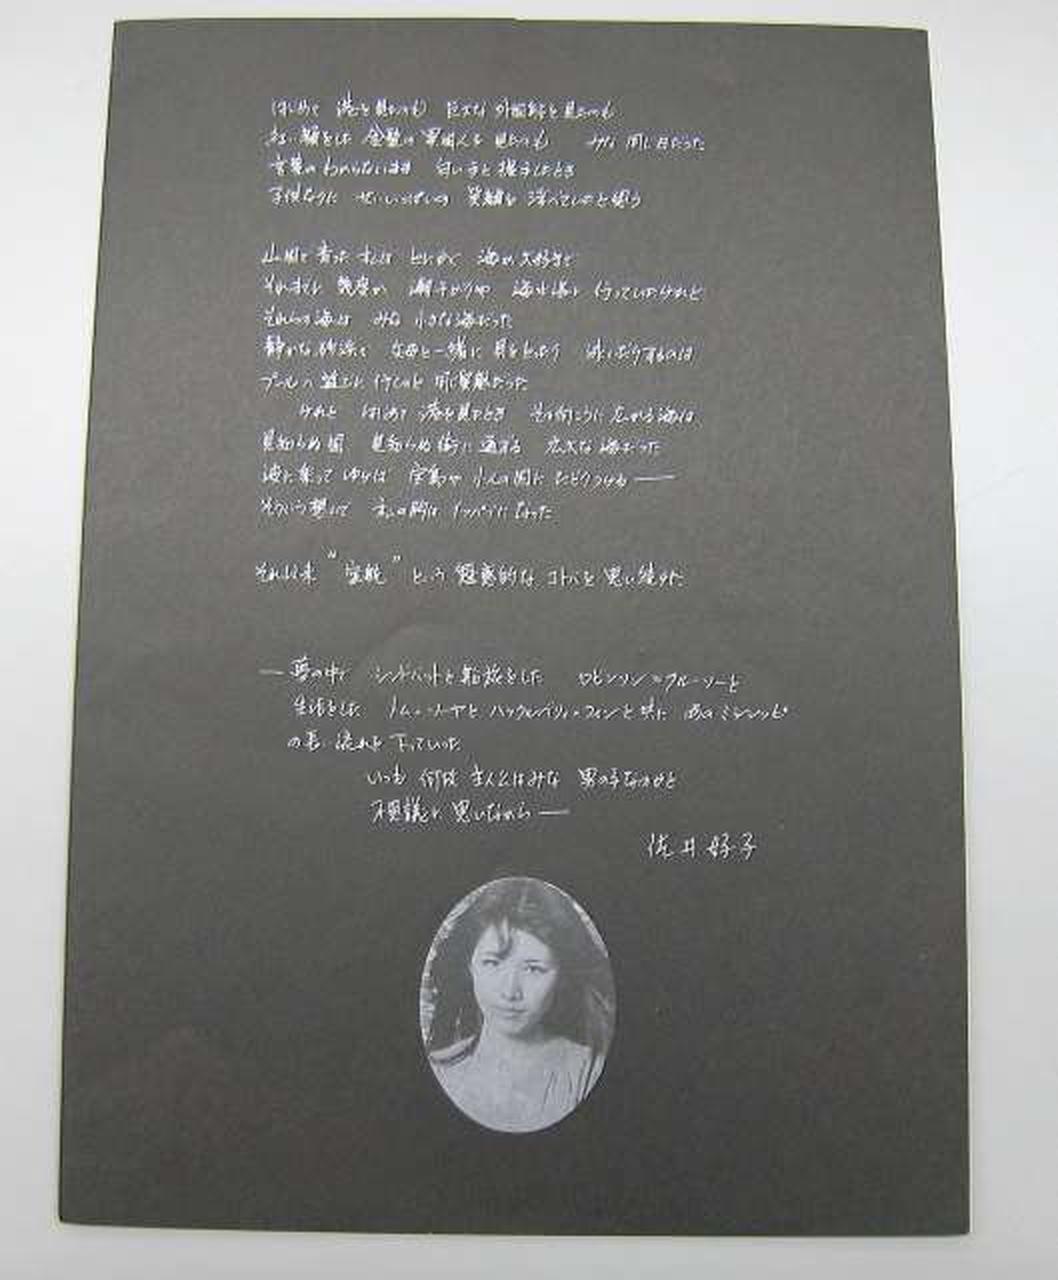 はじめて 港を見たのも 巨大な 外国船を見たのも
紅い顔をした 金髪の 異国人を 見たのも みな 同じ日だった
言葉の わからないまま 白い手と 握手したとき
子供なりに せいいっぱいの 笑顔を 浮べていたと思う
山国で 育った 私は とにかく 海が 大好きで
それまでも 幾度か 潮干がりや 海水浴に 行っていたけれど
それらの海は みな 小さな海だった
静かな 砂浜で 父母と一緒に 貝をとったり 泳いだりするのは
プールへ 遊びに 行くのと 同じ気軽だった
けれど はじめて 港を見たとき その向こうに 広がる海は
見知らぬ国 見知らぬ街に 通ずる 広大な 海だった
波に乗って ゆけば 宝島や 小人の国に たどりつける——
そういう想いで 私の胸は イッパイに なった
それ以来 "密航" という 魅惑的な コトバを 思い続けた
—夢の中で シンドバットと 船旅をした ロビンソン=クルーソーと
生活をした トム・ソーヤと ハックルベリィ・フィンと 共に あの ミシシッピ
の長い流れを 下っていった
いつも 何故 主人公はみな 男の子なのかと
不思議に 思いながら——
佐井好子